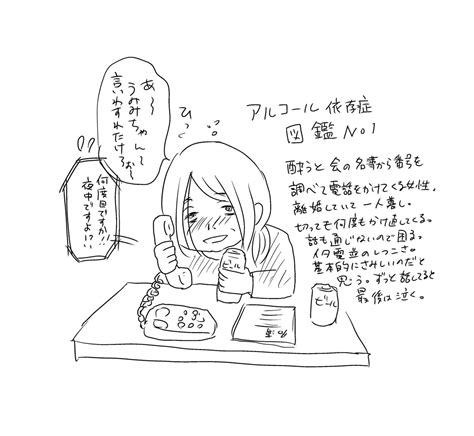 アルコール依存症
図鑑 No1
酔うと会の名寄から番号を
調べて電話をかけてくる女性。
離婚していて一人暮し。
切っても何度もかけ直してくる。
話も通じないので困る。
イタ電並のしつこさ。
基本的にさみしいのだと
思う。ずっと話してると
最後は泣く。
あ〜
うみみちゃんて
言いわすれたけろぉ〜
ひっく
何度目ですか!!
夜中ですよ!?
ビール
ビール